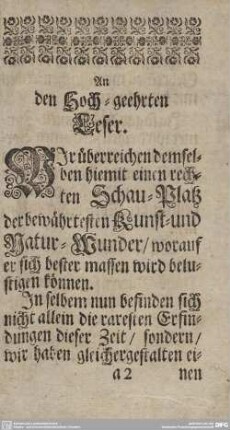 An
den Hoch-geehrten
Leser.
WIr überreichen demsel-
ben hiemit einen rech-
ten Schau-Platz
der bewährtesten Kunst-und
Natur-Wunder/ worauf
er sich bester massen wird belu-
stigen können.
In selbem nun befinden sich
nicht allein die raresten Erfin-
dungen dieser Zeit/ sondern/
wir haben gleichergestalten ei-
a2 nen